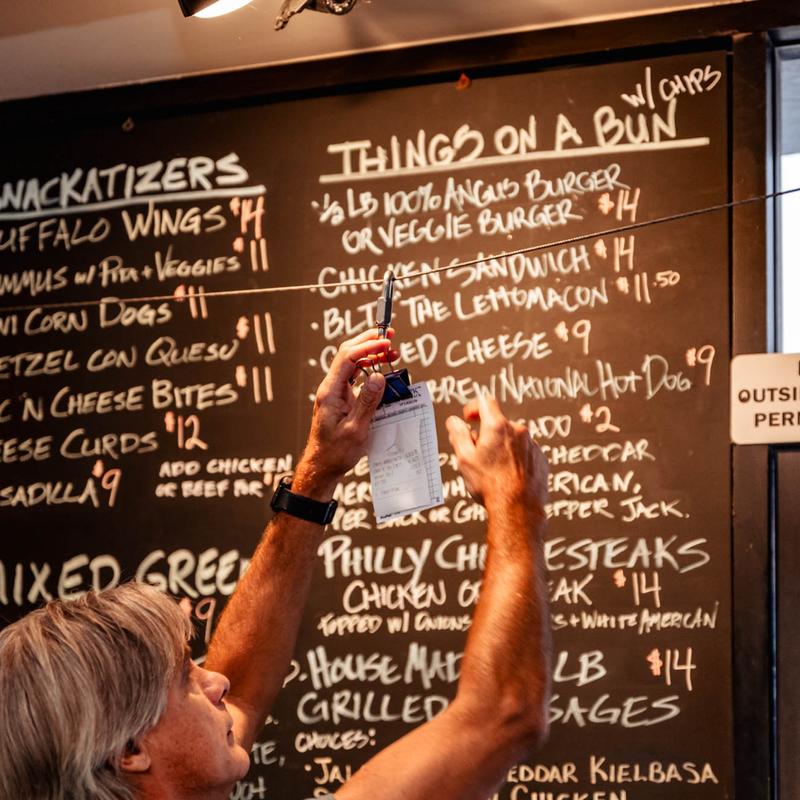 SNACKATIZERS
BUFFALO WINGS $14
HUMMUS w/ PITA + VEGGIES $11
MINI CORN DOGS $11
PRETZEL CON QUESO $11
MAC 'N CHEESE BITES $11
CHEESE CURDS $12
QUESADILLA $9
ADD CHICKEN
OR BEEF FOR
MIXED GREE
$9
W/ CHIPS
THINGS ON A BUN
· 1/2 LB 100% ANGUS BURGER
OR VEGGIE BURGER $14
· CHICKEN SANDWICH $14
· BLT THE LETTOMACON $11.50
ED CHEESE $9
BREW NATIONAL HOT DOG $9
ADD $2
CHEDDAR
AMERICAN,
PEPPER JACK OR GH PEPPER JACK.
PHILLY CHEESESTEAKS
CHICKEN OR STEAK $14
TOPPED W/ ONIONS + WHITE AMERICAN
HOUSE MAD LB $14
GRILLED SAUSAGES
CHOICES:
· JAL CHEDDAR KIELBASA
CHICKEN
OUTSI
PERI